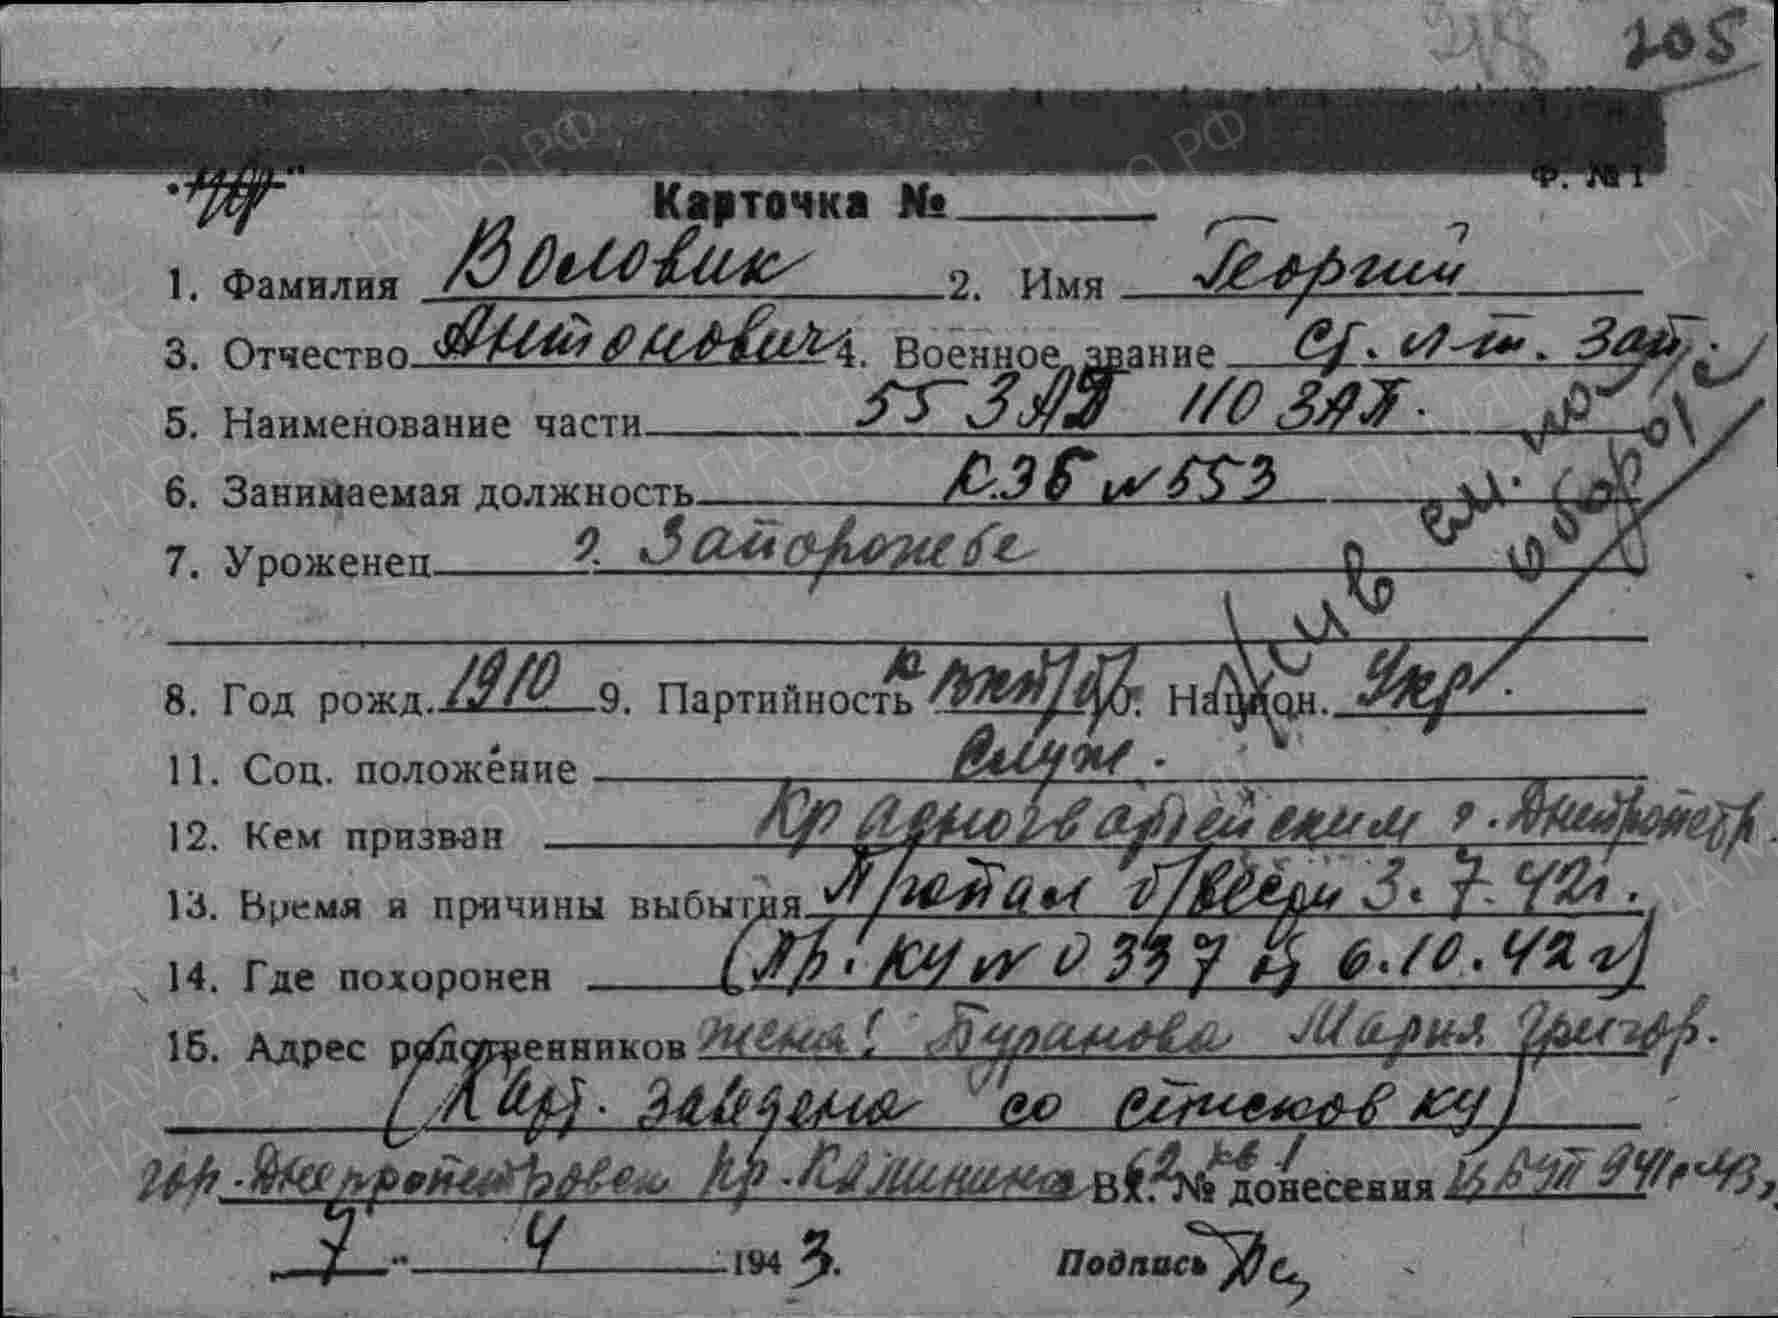 205
Ф. № 1
Карточка №
1. Фамилия Воловик 2. Имя Георгий
3. Отчество Антонович 4. Военное звание Ст. л-т. зап.
5. Наименование части 55 ЗАП 110 ЗАП.
6. Занимаемая должность К.ЗБ № 553
7. Уроженец г. Запорожье
Жив см.
8. Год рожд. 1910 9. Партийность к Национ. Укр.
11. Соц. положение Служ.
12. Кем призван Красногвардейским г. Днепропетр.
13. Время и причины выбытия Пропал б/вести 3.7.42г.
14. Где похоронен (Пр. КУ № 0337 от 6.10.42 г)
15. Адрес родственников жена: Буранова Мария Григор.
(Карт. заведена со списков КУ)
гор. Днепропетровск пр. Калинина 62 кв 1 Вх. № донесения
7 " 4 1943.
Подпись